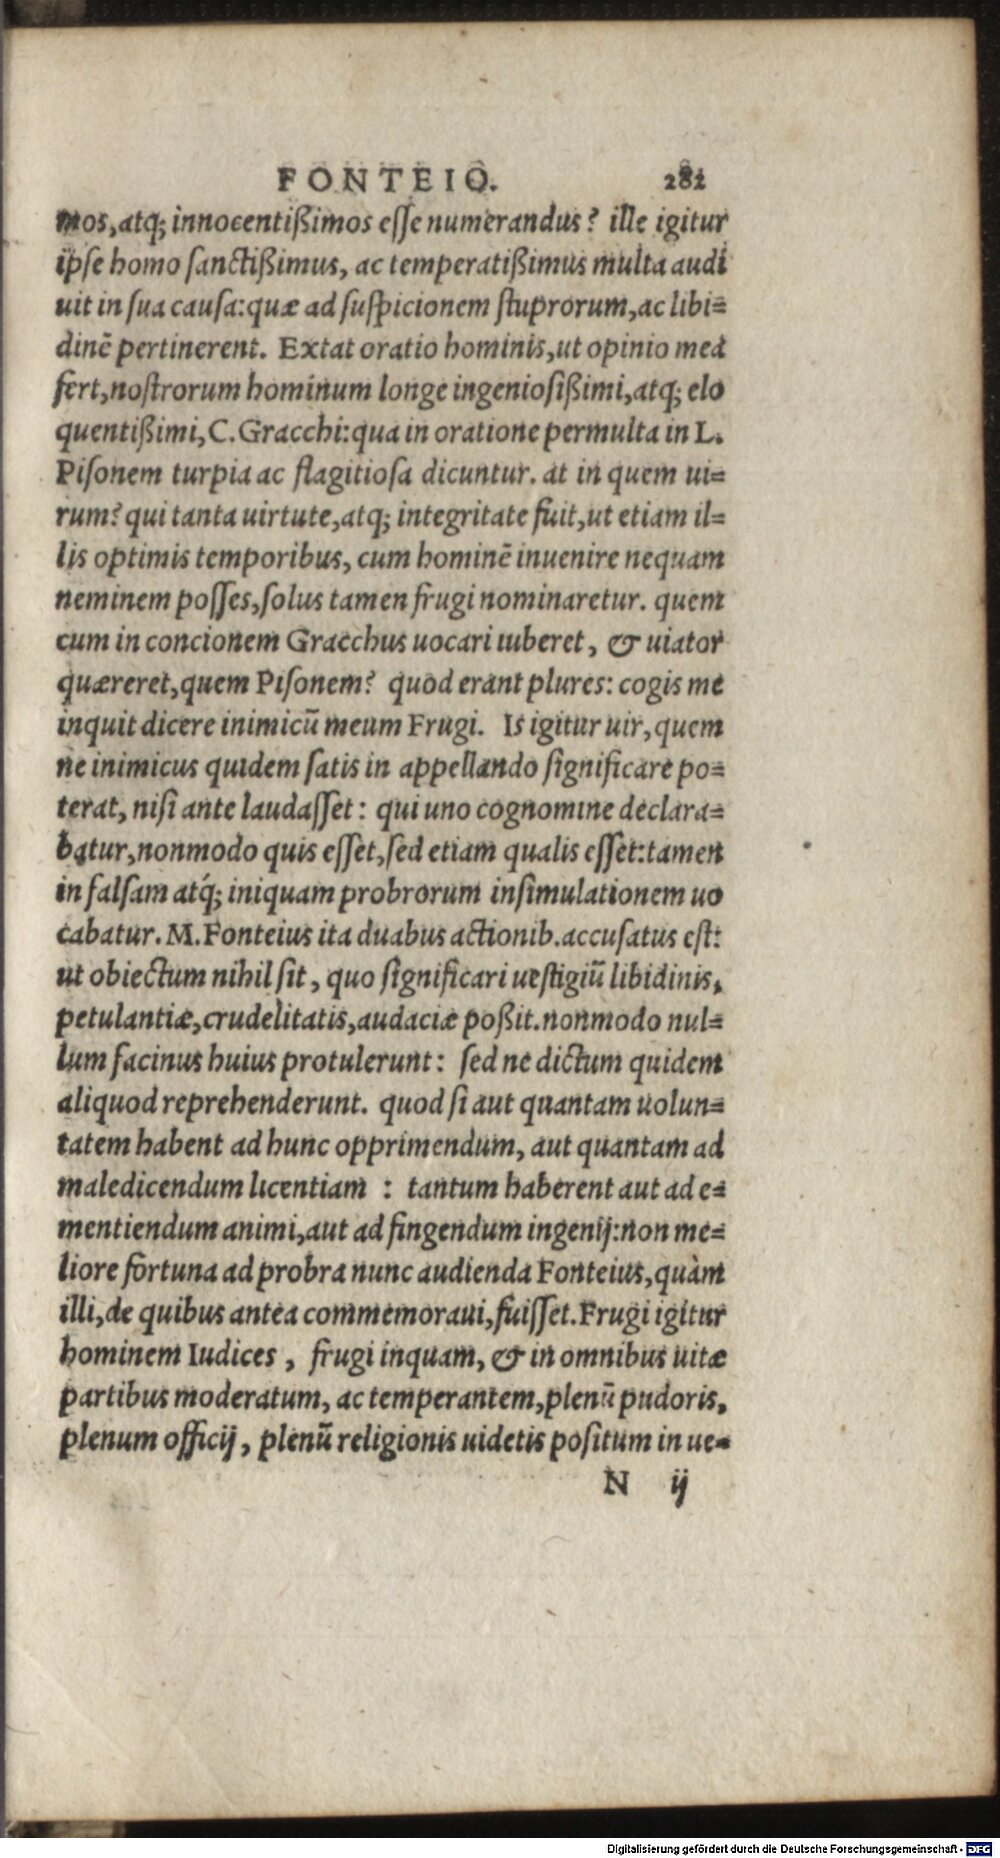 FONTEIO. 282
mos,atq; innocentißimos esse numerandus? ille igitur
ipse homo sanctißimus, ac temperatißimus multa audi
uit in sua causa:quæ ad suspicionem stuprorum,ac libi=
dinē pertinerent. Extat oratio hominis,ut opinio mea
fert,nostrorum hominum longe ingeniosißimi,atq; elo
quentißimi,C.Gracchi:qua in oratione permulta in L.
Pisonem turpia ac flagitiosa dicuntur. at in quem ui=
rum? qui tanta uirtute,atq; integritate fuit,ut etiam il=
lis optimis temporibus, cum hominē inuenire nequam
neminem posses,solus tamen frugi nominaretur. quem
cum in concionem Gracchus uocari iuberet, & uiator
quæreret,quem Pisonem? quod erant plures: cogis me
inquit dicere inimicū meum Frugi. Is igitur uir,quem
ne inimicus quidem satis in appellando significare po=
terat, nisi ante laudasset: qui uno cognomine declara=
batur,nonmodo quis esset,sed etiam qualis esset:tamen
in falsam atq́; iniquam probrorum insimulationem uo
cabatur. M.Fonteius ita duabus actionib.accusatus est:
ut obiectum nihil sit, quo significari uestigiū libidinis,
petulantiæ,crudelitatis,audaciæ poßit.nonmodo nul=
lum facinus huius protulerunt: sed ne dictum quidem
aliquod reprehenderunt. quod si aut quantam uolun=
tatem habent ad hunc opprimendum, aut quantam ad
maledicendum licentiam : tantum haberent aut ad e=
mentiendum animi,aut ad fingendum ingenij:non me=
liore fortuna ad probra nunc audienda Fonteius,quàm
illi,de quibus antea commemoraui,fuisset.Frugi igitur
hominem Iudices, frugi inquam, & in omnibus uitæ
partibus moderatum, ac temperantem,plenū pudoris,
plenum officij, plenū religionis uidetis positum in ue=
N ij
Digitalisierung gefördert durch die Deutsche Forschungsgemeinschaft - DFG